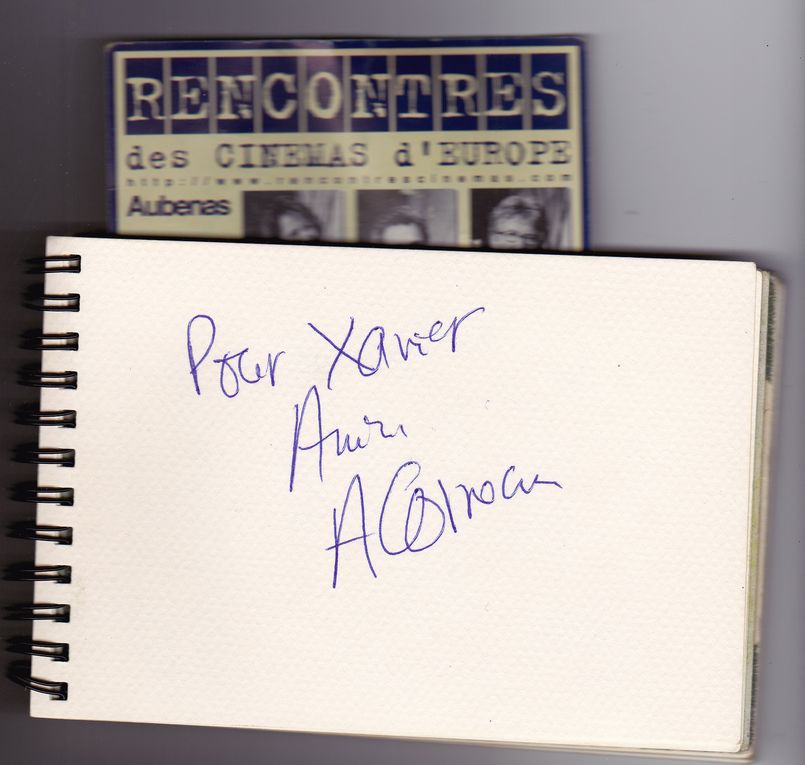 RENCONTRES
des CINEMAS d'EUROPE
http://www.rencontrescinemas.com
Aubenas
Pour Xavier
Amiti
A Corneau